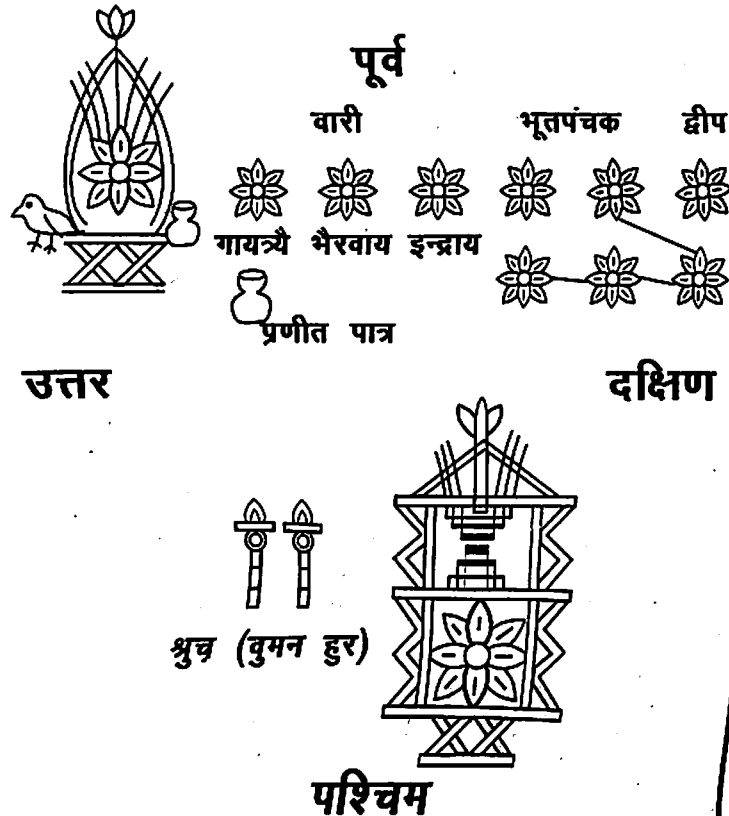 पूर्व
वारी भूतपंचक द्वीप
गायत्र्यै भैरवाय इन्द्राय
प्रणीत पात्र
उत्तर दक्षिण
श्रुच (वुमन हुर)
पश्चिम